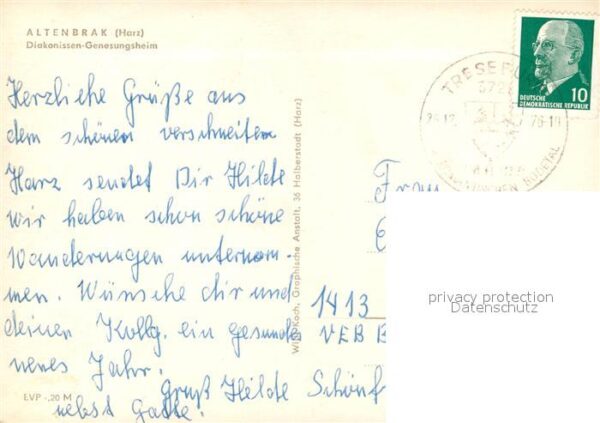 ALTENBRAK (Harz)
Diakonissen-Genesungsheim
Herzliche Grüße aus
dem schönen verschneiten
Harz sendet Dir Hilde
wir haben schon schöne
Wanderungen unternom-
men. Wünsche dir und
deinen Kollg. ein gesundes
neues Jahr.
Gruß Hilde Schönf
nebst Gatte.
EVP -,20 M
Koch, Graphische Anstalt, 36 Halberstadt (Harz)
TRESEBURG
DEUTSCHE
DEMOKRATISCHE REPUBLIK
10
Frau
1413
VEB B
privacy protection
Datenschutz